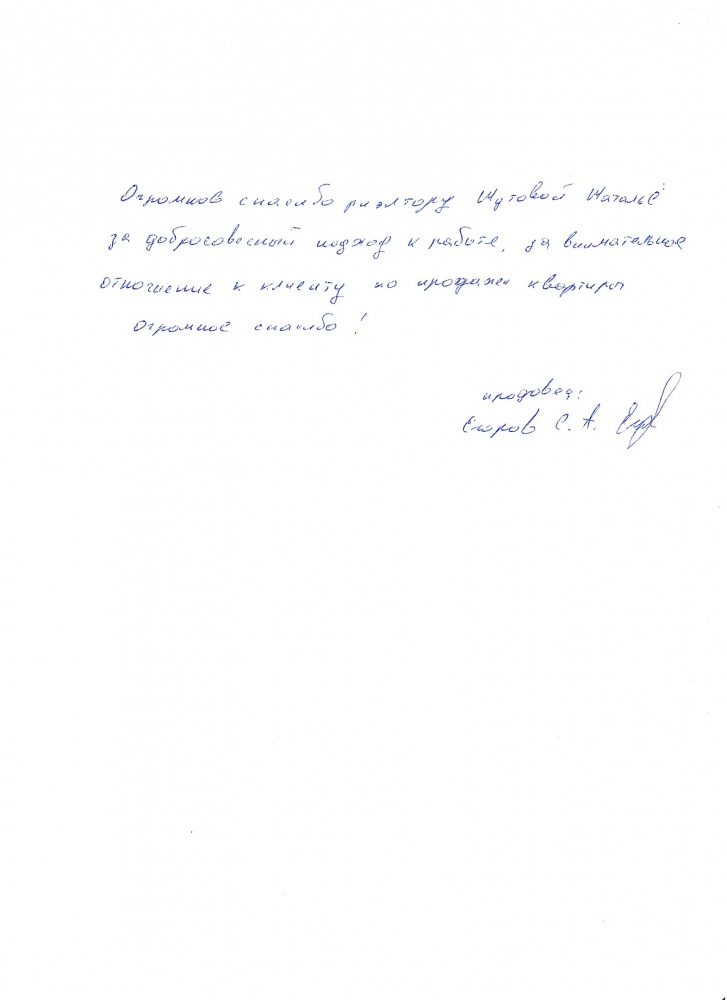 Огромное спасибо риэлтору Шутовой Наталье
за добросовесный подход к работе, за внимательное
отношение к клиенту по продажи квартиры
огромное спасибо!
продовец:
Егоров С. А.